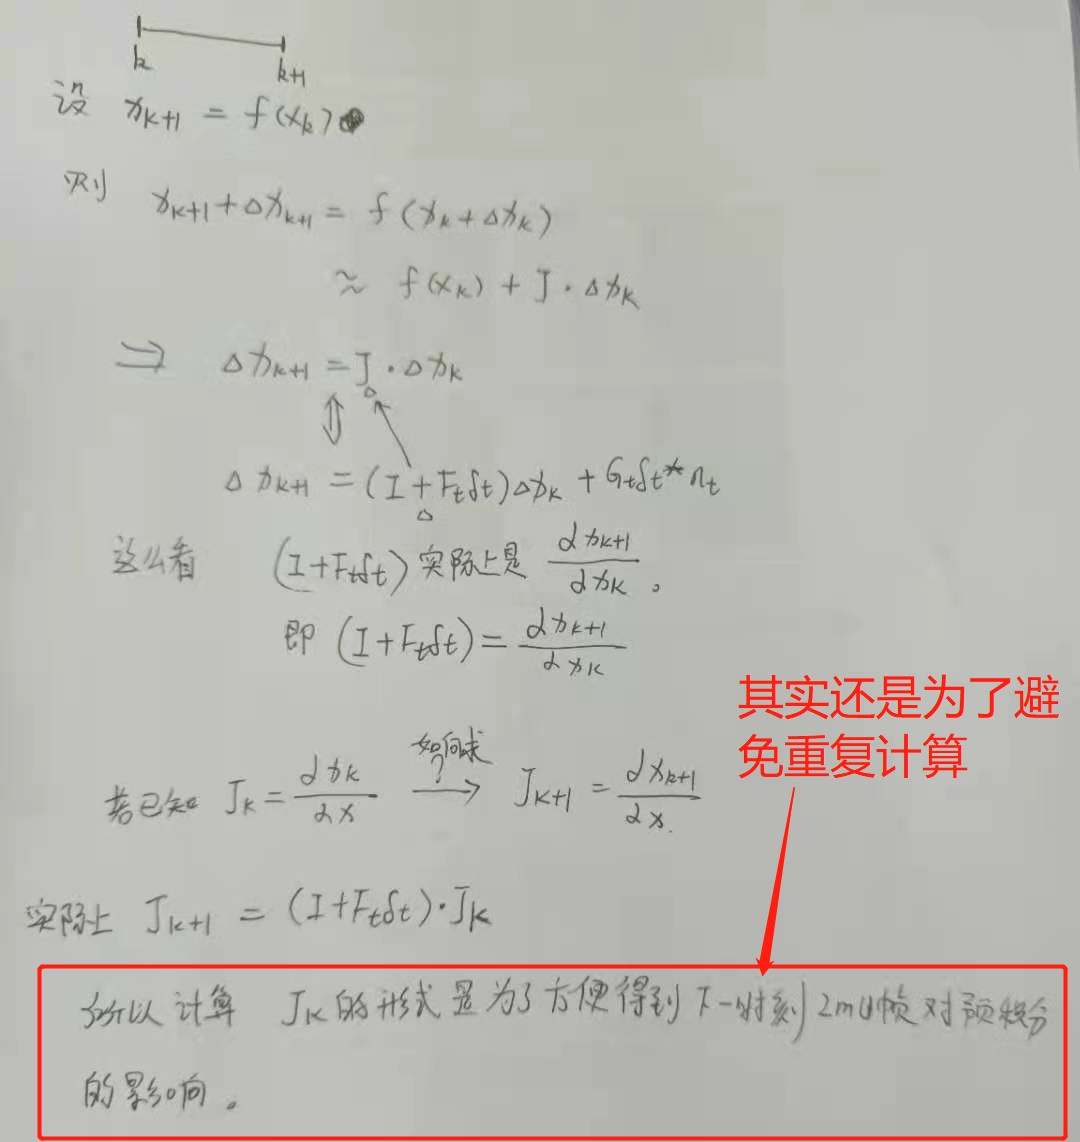 k
k+1
设 x_{k+1} = f(x_k)
则 x_{k+1}+Δx_{k+1} = f(x_k+Δx_k)
≈ f(x_k) + J·Δx_k
⇒ Δx_{k+1} = J·Δx_k
⇕
Δx_{k+1} = (I+F_tδt)Δx_k + G_tδt*n_t
这么看 (I+F_tδt) 实际上是 ∂x_{k+1}/∂x_k。
即 (I+F_tδt) = ∂x_{k+1}/∂x_k
其实还是为了避
免重复计算
若已知 J_k = ∂x_k/∂x 如何求? → J_{k+1} = ∂x_{k+1}/∂x.
实际上 J_{k+1} = (I+F_tδt)·J_k
所以计算 J_k的形式是为了方便得到下一时刻Imu帧对预积分
的影响。